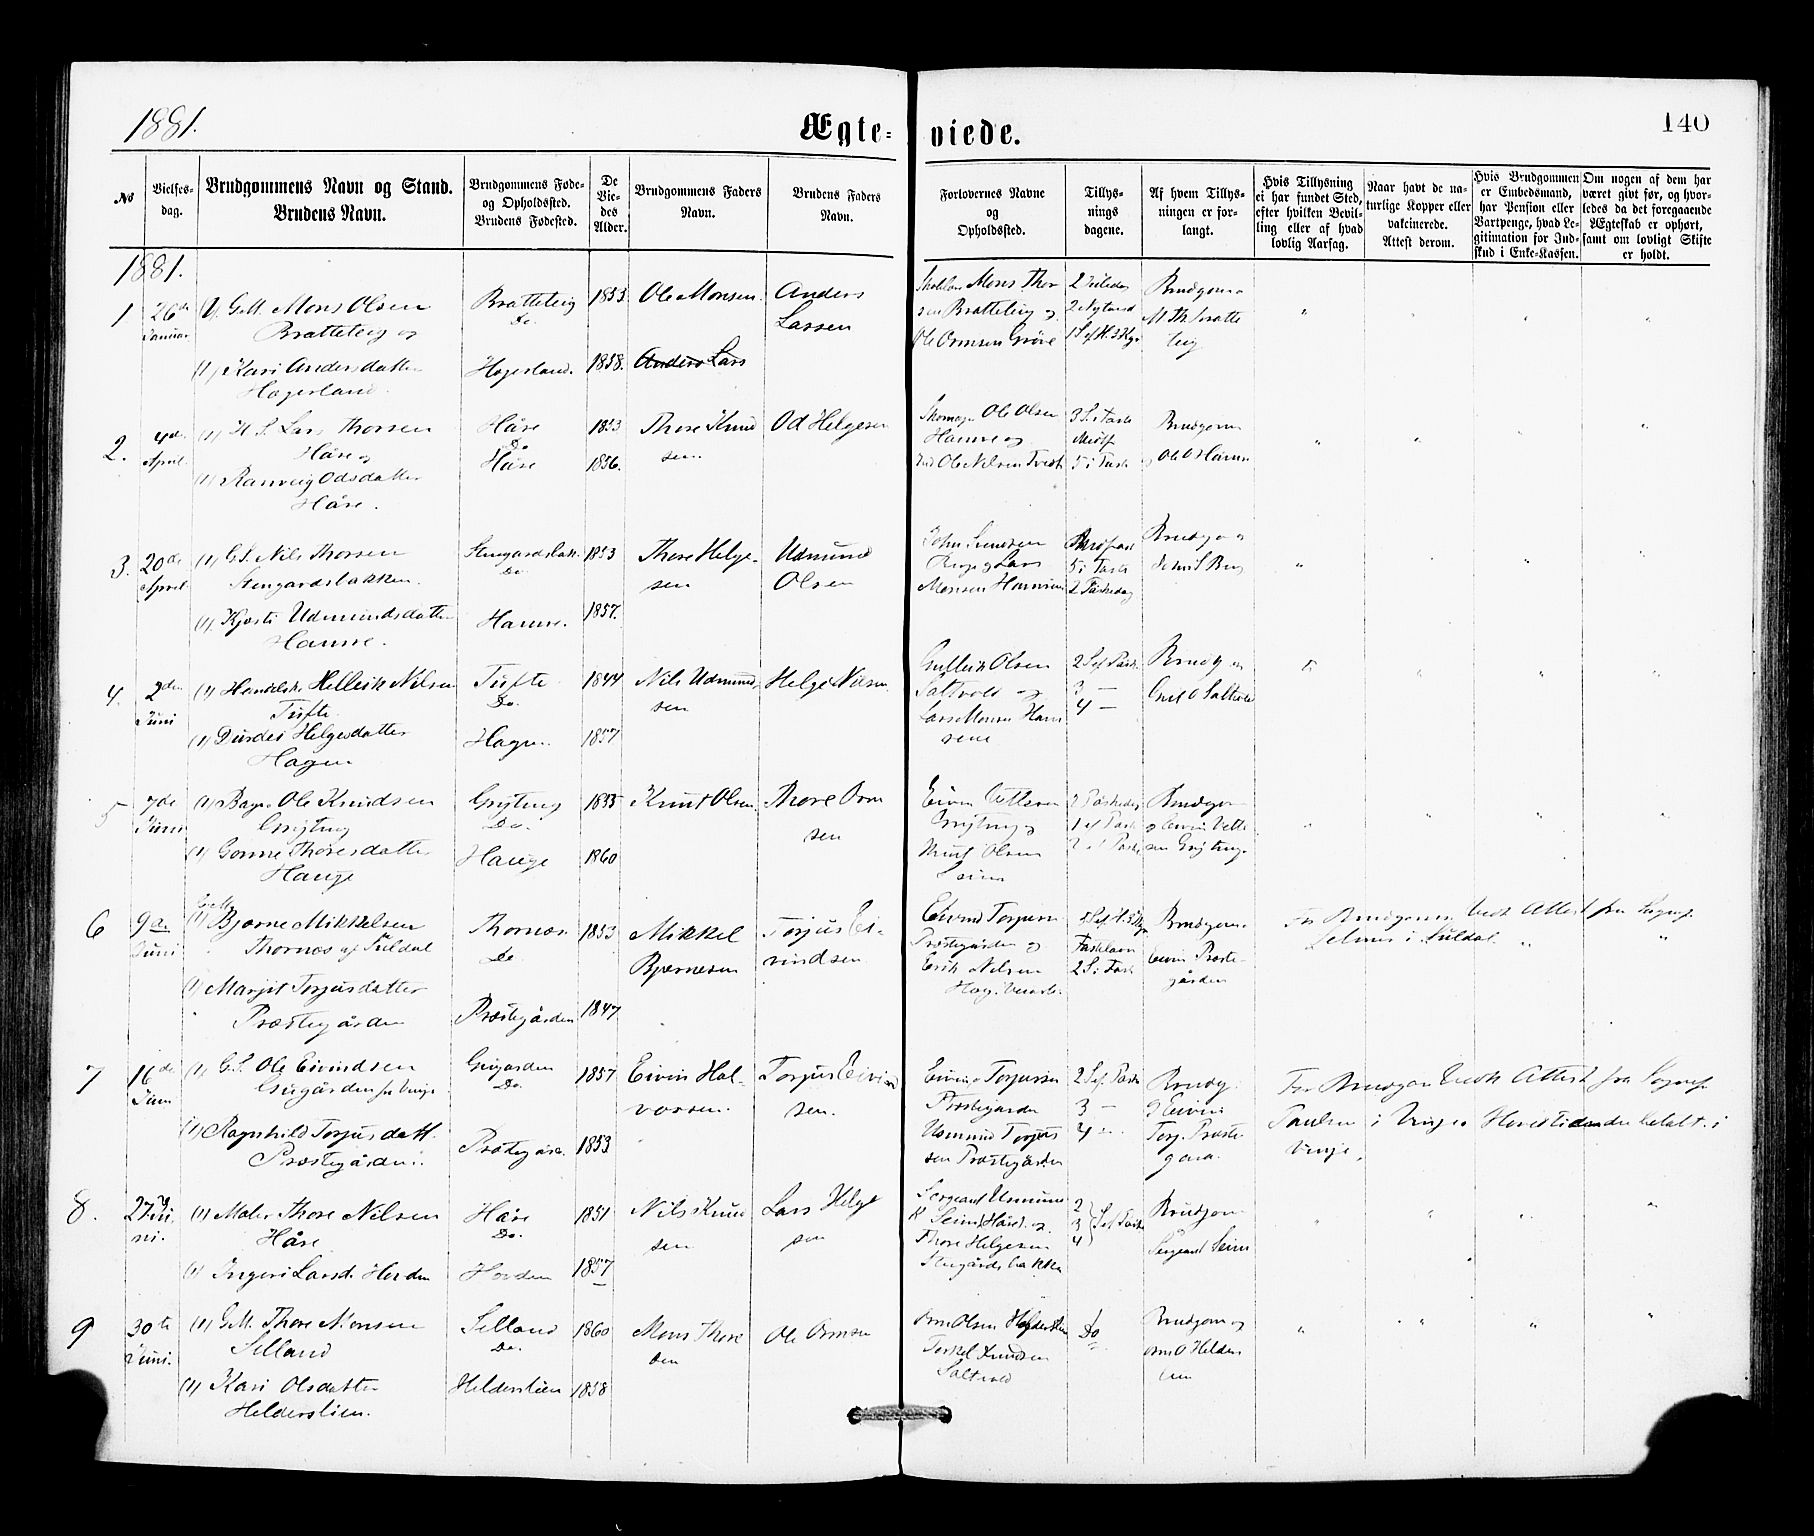 1881.
Ægte-viede.
140
No
Vielses-
dag.
Brudgommens Navn og Stand.
Brudens Navn.
Brudgommens Føde-
og Opholdssted.
Brudens Fødested.
De
Vie-
des
Alder.
Brudgommens Faders
Navn.
Brudens Faders
Navn.
Forlovernes Navne
og
Opholdssted.
Tillys-
nings
dagene.
Af hvem Tillys-
ningen er for-
langt.
Hvis Tillysning
ei har fundet Sted,
efter hvilken Bevil-
ling eller af hvad
lovlig Aarsag.
Naar havt de na-
turlige Kopper eller
vakcinerede.
Attest derom.
Hvis Brudgommen
er Embedsmand,
har Pension eller
Vartpenge, hvad Le-
gitimation for Ind-
skud i Enke-Kassen.
Om nogen af dem har
været gift før, og hvor-
ledes da det foregaaende
Ægteskab er ophørt,
samt om lovligt Skifte
er holdt.
1881.
1 26de Januar
G.M. Mons Olsen
Bratteteig og
(1) Kari Andersdatter
Hagerland.
Bratteteig
Do.
Hagerland.
1853.
1858.
Ole Monsen.
Anders Lars
Anders
Lassen
Mons Thor
sen Bratteteig og
Ole Ormsen Grøve
Brudgom
2. 4de April.
(1) Lars Thorsen
Håre og
(1) Ranveig Odsdatter
Håre.
Håre
Do
Håre
1853
1856.
Thore Knud
sen.
Od Helgesen
Ole Olsen
Hamre og
Ole Nilsen Tveito
Brudgom
og Ole O Hamre
3. 20de April
(1) G.S. Nils Thorsen
Stengardsbakken.
(1) Kjersti Udmundsdatter
Hamre.
Stengardsbakk.
Do.
Hamre.
1853
1857.
Thore Helge-
sen
Udmund
Olsen
John Svendsen
og Lars
Monsen
5 i Faste
2 Påskedag
Brudg. og
4. 2den Juni
(1) Handelsk. Helleik Nilsen
Tufte.
(1) Durdei Helgesdatter
Hagen
Tufte
Do.
Hagen.
1844
1857
Nils Udmund
sen
Helge Nilsen
Gulleik Olsen
Saltvold og
Lars Monsen
2 S.ef. Påsk.
3 —
4 —
Brudg og
Gul O Saltvold
5 7de Juni
(1) Ole Knudsen
Grytting
(1) Gonne Thoresdatter
Hauge
Grytting
Do.
Hauge
1855
1860
Knut Olsen
Thore Orm
sen
Eivin Vetlesen
Grytting og
Knut Olsen
Seim
2 Påskedag
1 ef Påsk
2 ef Påsk
Brudgom
og Eivin Vetle
sen Grytting
6 9de Juni
(1) Bjørne Mikkelsen
Thornæs af Suldal
(1) Margit Torjusdatter
Præstegården
Thornæs
Do.
Præstegården
1853
1847
Mikkel
Bjørnesen
Torjus Ei-
vindsen
Eivind Torjusen
Præstegården og
Erik Nilsen
2 S i Fast
Brudgom
Eivin Præste-
gården
For Brudgommen Vedk Attest fra Sognep.
i Suldal
7 16de Juni
(1) G.S. Ole Eivindsen
Grigården fra Vinje
(1) Ragnhild Torjusdatt.
Præstegården.
Grigarden
Do.
Præstegård.
1857
1853
Eivin Hal-
vorsen.
Torjus Eivind
sen.
Eivind Torjusen
Præstegarden
Udmund Torjus
sen Præstegården
2 S.ef. Påsk
3 —
4 —
Brudg.
og Eivin
Torj. Præste
gard.
For Brudgom Vedk Attest fra Sognep
Paulsen i Vinje betalt i
Vinje.
8. 27de Ju
ni.
(1) Maler Thore Nilsen
Håre
(1) Ingeri Larsd. Hovden
Håre
Do.
Hovden
1851
1857
Nils Knud
sen
Lars Helge
sen
Sergeant Udmund
K Seim Håre og
Thore Helgesen
Stengårdsbakken
2
3 S.ef Påsk
4
Brudgom
Sergeant Seim
9 30te Juni.
(1) G.M. Thore Monsen
Selland
(1) Kari Olsdatter
Helderslien.
Selland
Do.
Helderslien
1860
1858
Mons Thore
sen
Ole Ormsen
Orm Olsen Helderslien
Torkel Knudsen
Saltvold
Do
Brudgom og
Orm O Helders
lien